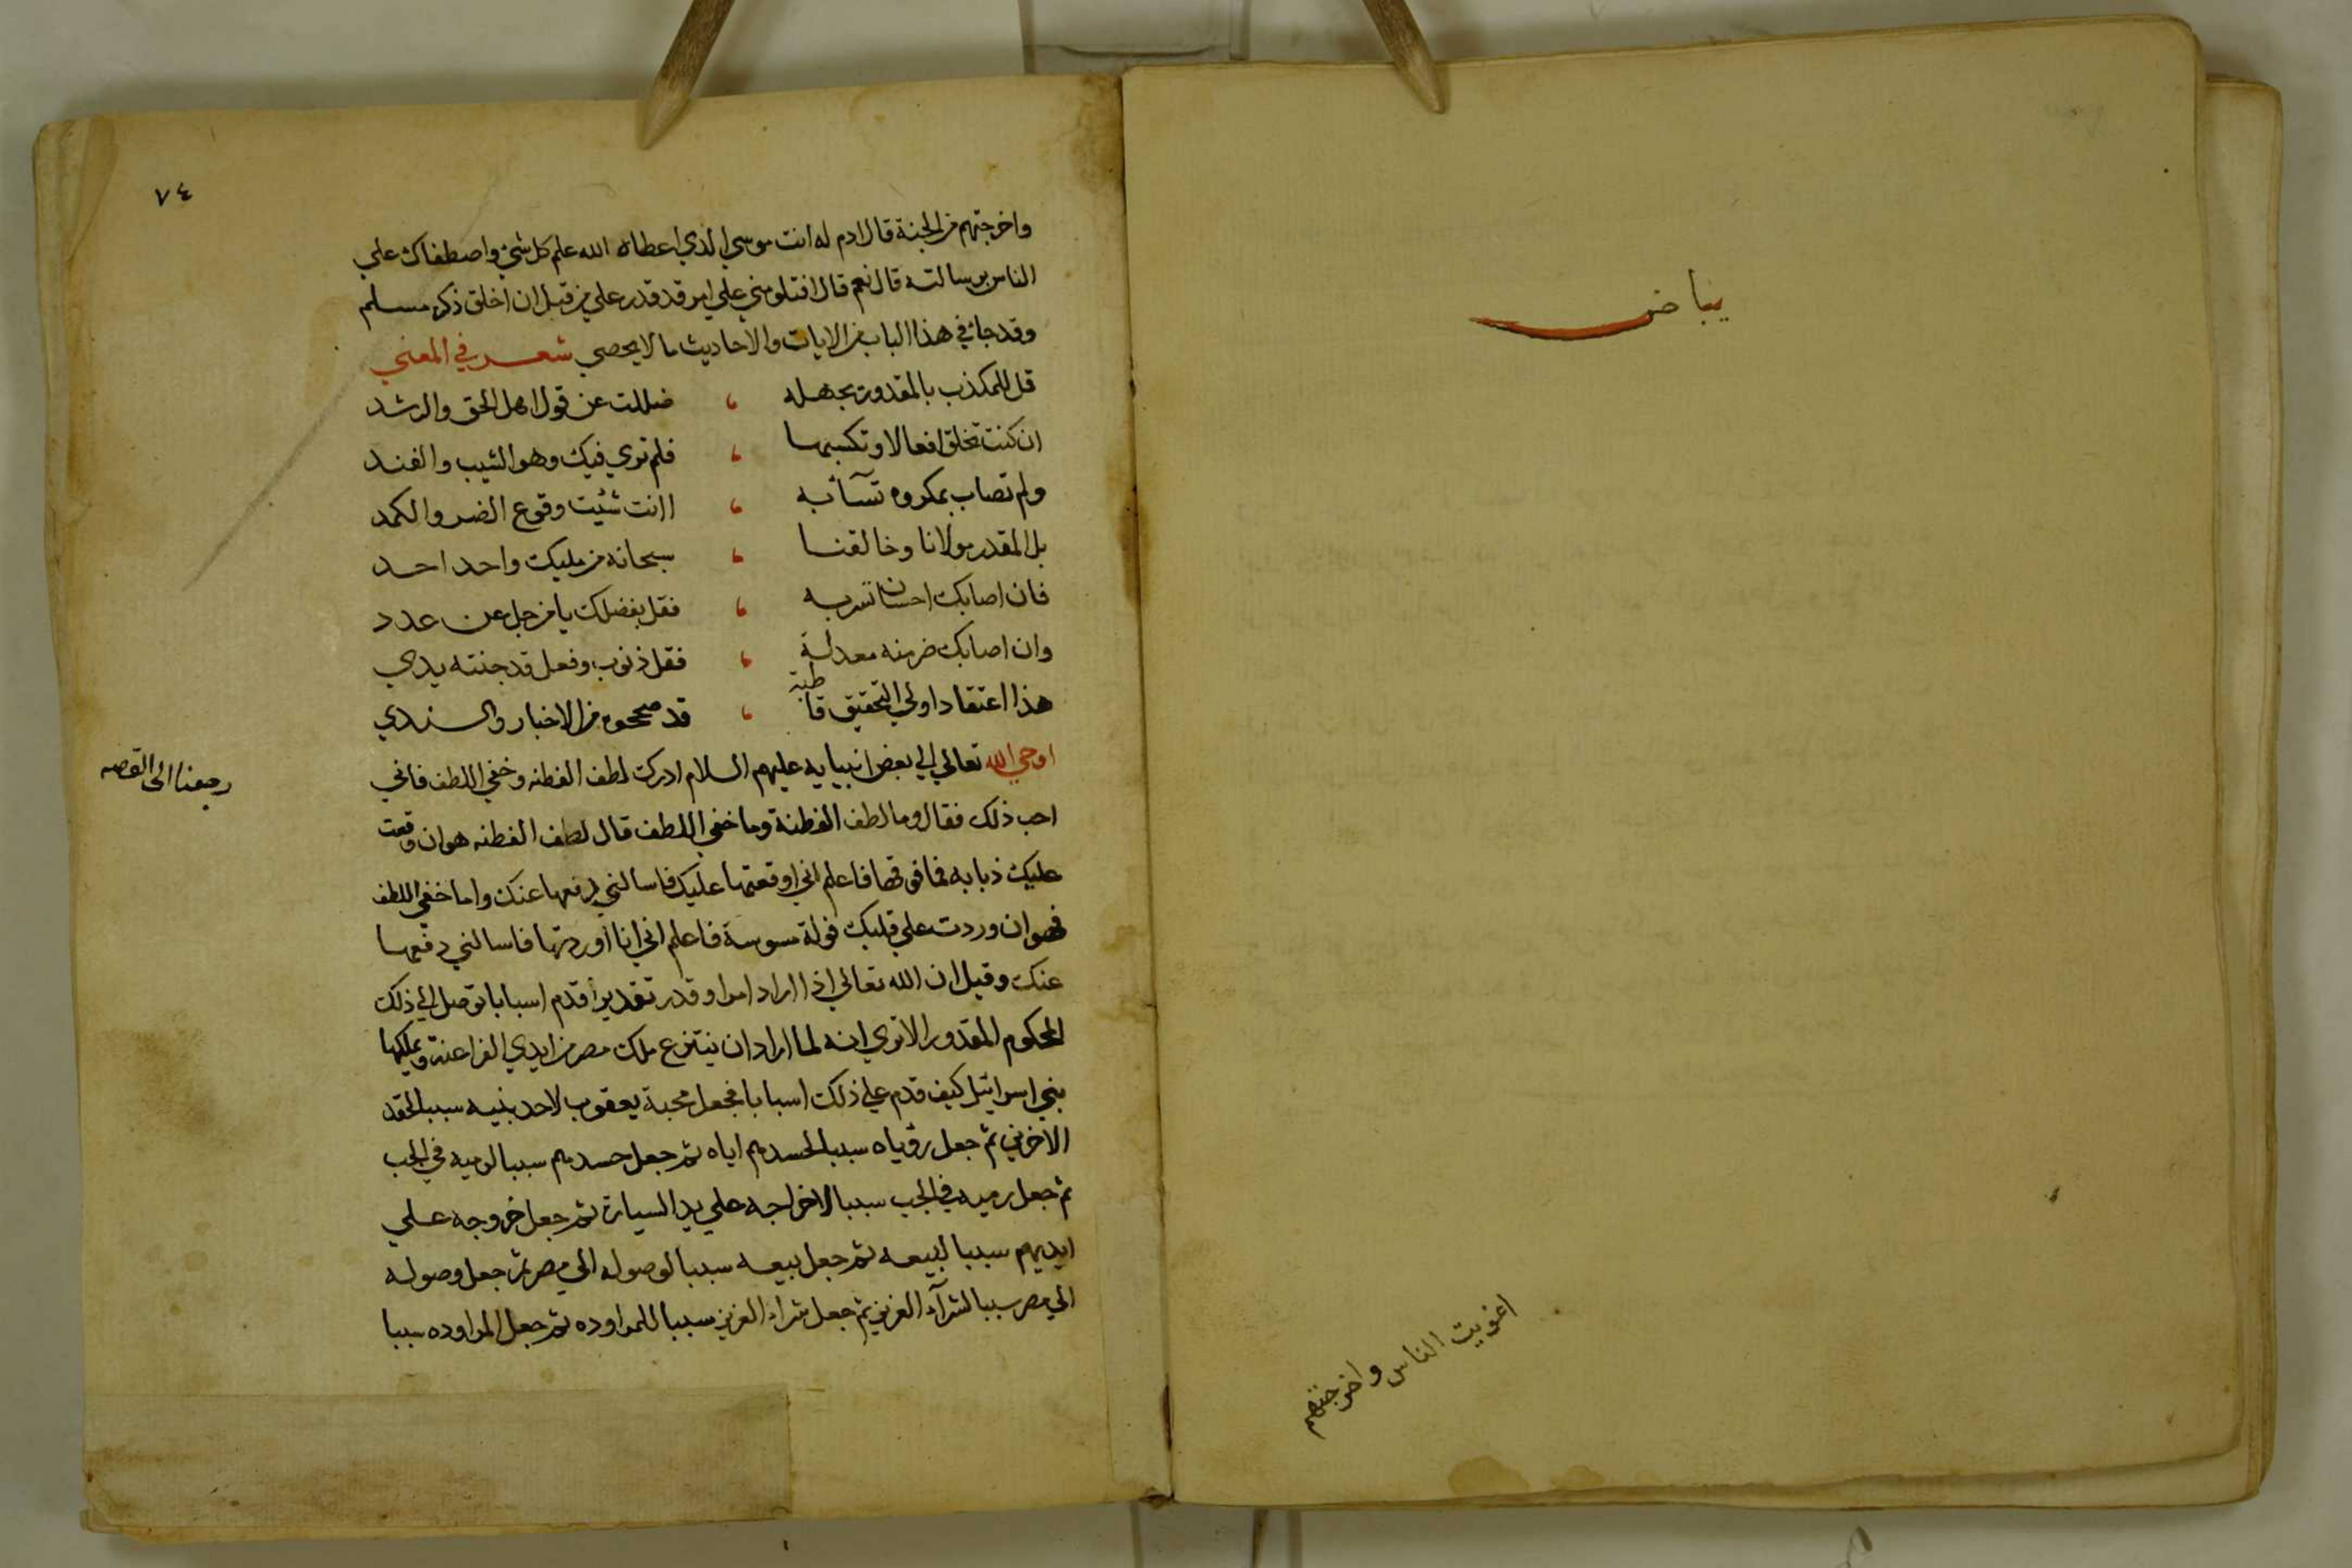 بياض
اغويت الناس واخرجتهم
٧٤
واخرجتهم من الجنة قال ادم له انت موسي الذي اعطاه الله علم كل شئ واصطفاك علي
الناس برسالته قال نعم قال افتلومني علي امر قد قدر علي من قبل ان اخلق ذكره مسلم
وقد جائ في هذا الباب من الايات والاحاديث ما لا يحصي شعر في المعني
قل للمكذب بالمقدور بجهله ، ضللت عن قول اهل الحق والرشد
ان كنت تخلق افعالا وتكسبها ، فلم نري فيك وهو الشيب والفند
ولم تصاب بمكروه تسآئبه ، اانت شئيت وقوع الضر والكمد
بل المقدر مولانا وخالقنا ، سبحانه من مليك واحد احد
فان اصابك احسان تسر به ، فقل بفضلك يا من جل عن عدد
وان اصابك ضر منه معدلة ، فقل ذنوب وفعل قد جنته يدي
هذا اعتقاد اولي التحقيق قاطبة ، قد صححوه من الاخبار والسندي
اوحي الله تعالي الي بعض انبيايه عليهم السلام ادرك لطف الفطنه وخفي اللطف فاني
رجعنا الى القصه
احب ذلك فقال وما لطف الفطنة وما خفي اللطف قال لطف الفطنه هو ان وقعت
عليك ذبابه فما فوقها فاعلم اني اوقعتها عليك فاسالني برفعها عنك واما خفي اللطف
فهو ان وردت علي قلبك فولة مسوسة فاعلم اني انا اوردتها فاسالني دفعها
عنك وقيل ان الله تعالي اذا اراد امرا وقدر تقديرا قدم اسبابا توصل الي ذلك
المحكوم المقدور الا تري انه لما اراد ان ينتزع ملك مصر من ايدي الفراعنة ويملكها
بني اسرائيل كيف قدم علي ذلك اسبابا فجعل محبة يعقوب لاحد بنيه سببا لحقد
الاخرين ثم جعل رؤياه سببا لحسدهم اياه ثم جعل حسدهم سببا لرميه في الجب
ثم جعل رميه في الجب سببا لاخراجه علي يد السيارة ثم جعل خروجه علي
ايديهم سببا لبيعه ثم جعل بيعه سببا لوصوله الي مصر ثم جعل وصوله
الي مصر سببا لشرآء العزيز ثم جعل شراء العزيز سببا للمراوده ثم جعل المراوده سببا